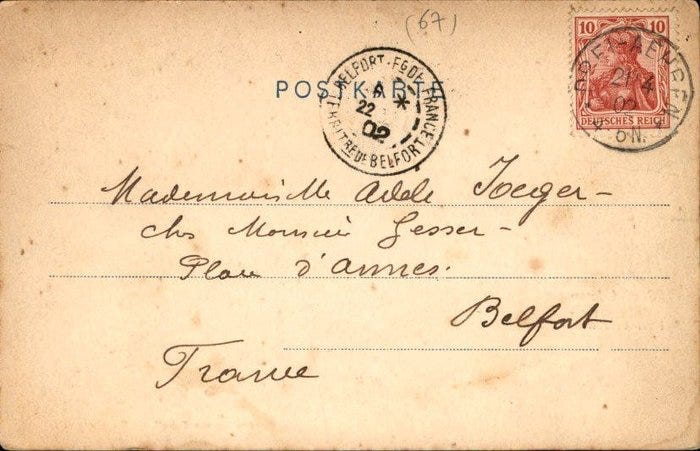 (67)
10 10
DEUTSCHES REICH
21 4
02
6 N.
POSTKARTE
BELFORT - FG DE FRANCE
22
02
TERRITRE DE BELFORT
Mademoiselle Adele Joeger -
chez Monsieur Gesser -
Place d'Armes.
Belfort
France